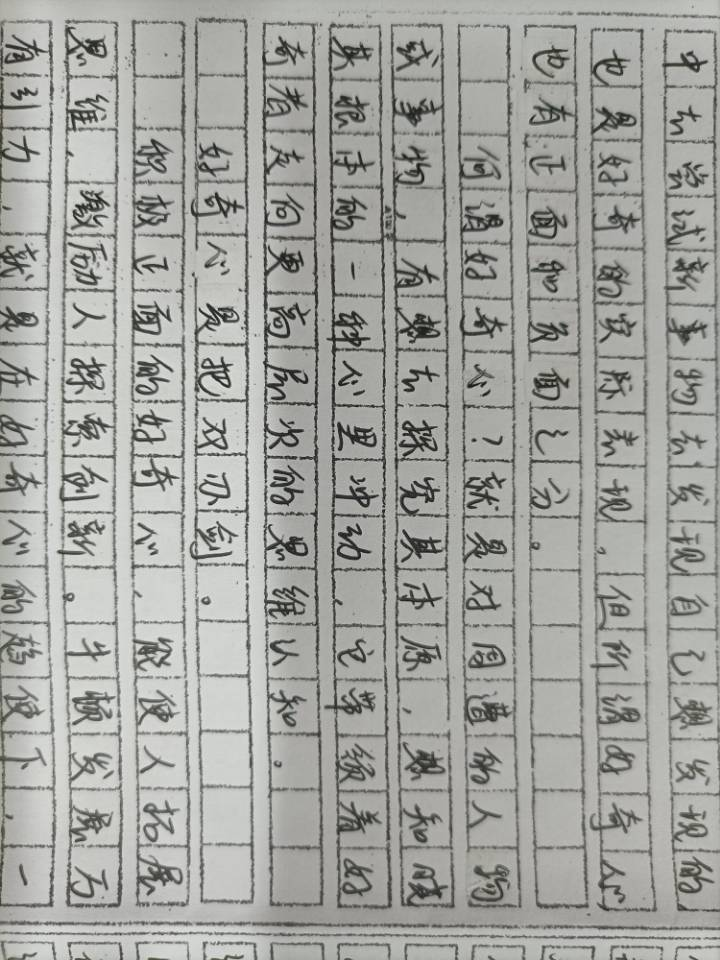 中去尝试新事物去发现自己想发现的
也是好奇的实际表现。但所谓好奇心
也有正面和负面之分。
何谓好奇心？就是对周遭的人物
或事物，有想去探究其本原，想知晓
其根本的一种心里冲动，它带领着好
奇者走向更高层次的思维认知。
好奇心是把双刃剑。
积极正面的好奇心，能使人拓展
思维，激励人探索创新。牛顿发展万
有引力，就是在好奇心的趋使下，一